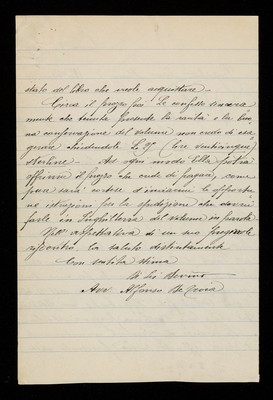 stato del libro che vuole acquistare.
Circa il prezzo poi Le confesso sincera
mente che tenuta presente la rarità e la buo
na conservazione del volume non credo di esa
gerare chiedendole L. (lire venticinque)
sterline. Ad ogni modo Ella potrà
offrirmi il prezzo che crede di pagare, come
pure sarà cortese d'inviarmi le opportu
ne istruzioni per la spedizione che dovrei
farle in Inghilterra del volume in parola
Nell'aspettativa di un suo
riscontro La saluto distintamente
Con sentita stima
Di Lei
Avv. Alfonso